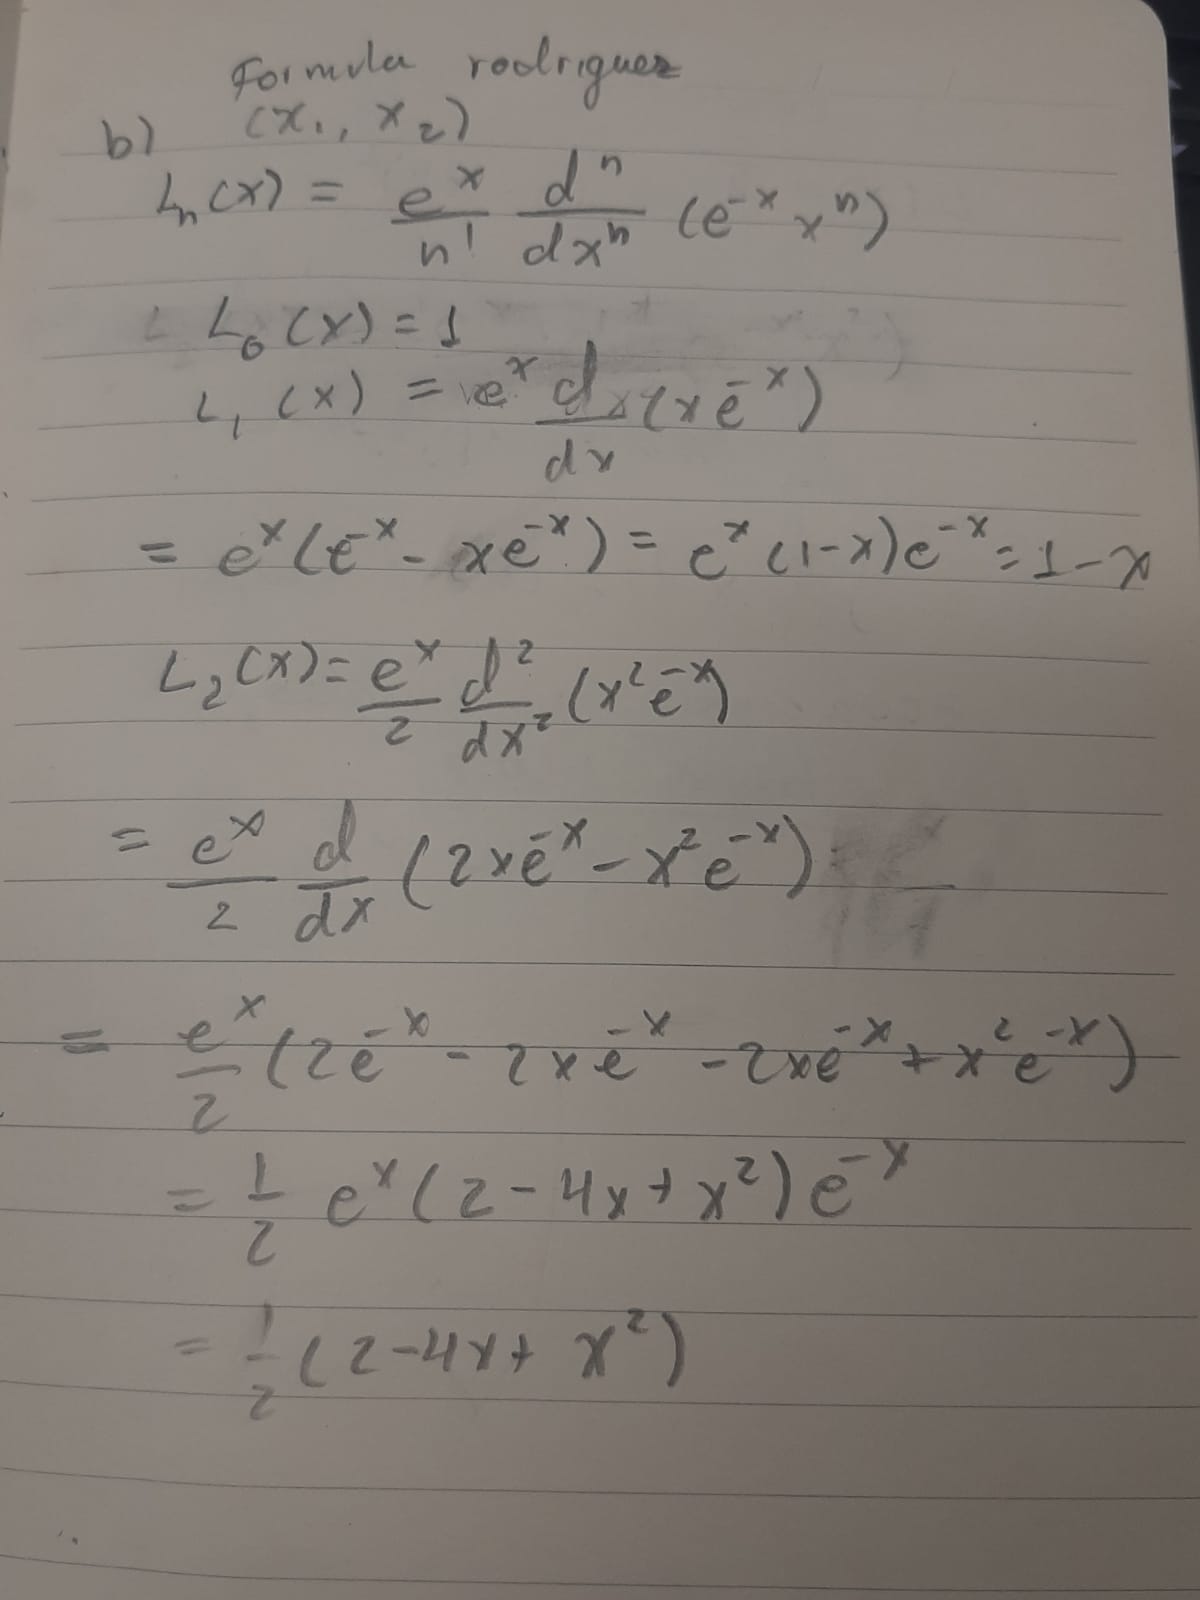 Formula rodriguez
(x₁, x₂)
b)
Lₙ(x) = eˣ/n! dⁿ/dxⁿ (e⁻ˣ xⁿ)
L₀(x) = 1
L₁(x) = eˣ d/dx (x e⁻ˣ)
= eˣ(e⁻ˣ - xe⁻ˣ) = eˣ(1-x)e⁻ˣ = 1-x
L₂(x) = eˣ/2 d²/dx² (x²e⁻ˣ)
= eˣ/2 d/dx (2xe⁻ˣ - x²e⁻ˣ)
= eˣ/2 (2e⁻ˣ - 2xe⁻ˣ - 2xe⁻ˣ + x²e⁻ˣ)
= 1/2 eˣ(2-4x+x²)e⁻ˣ
= 1/2 (2-4x+x²)